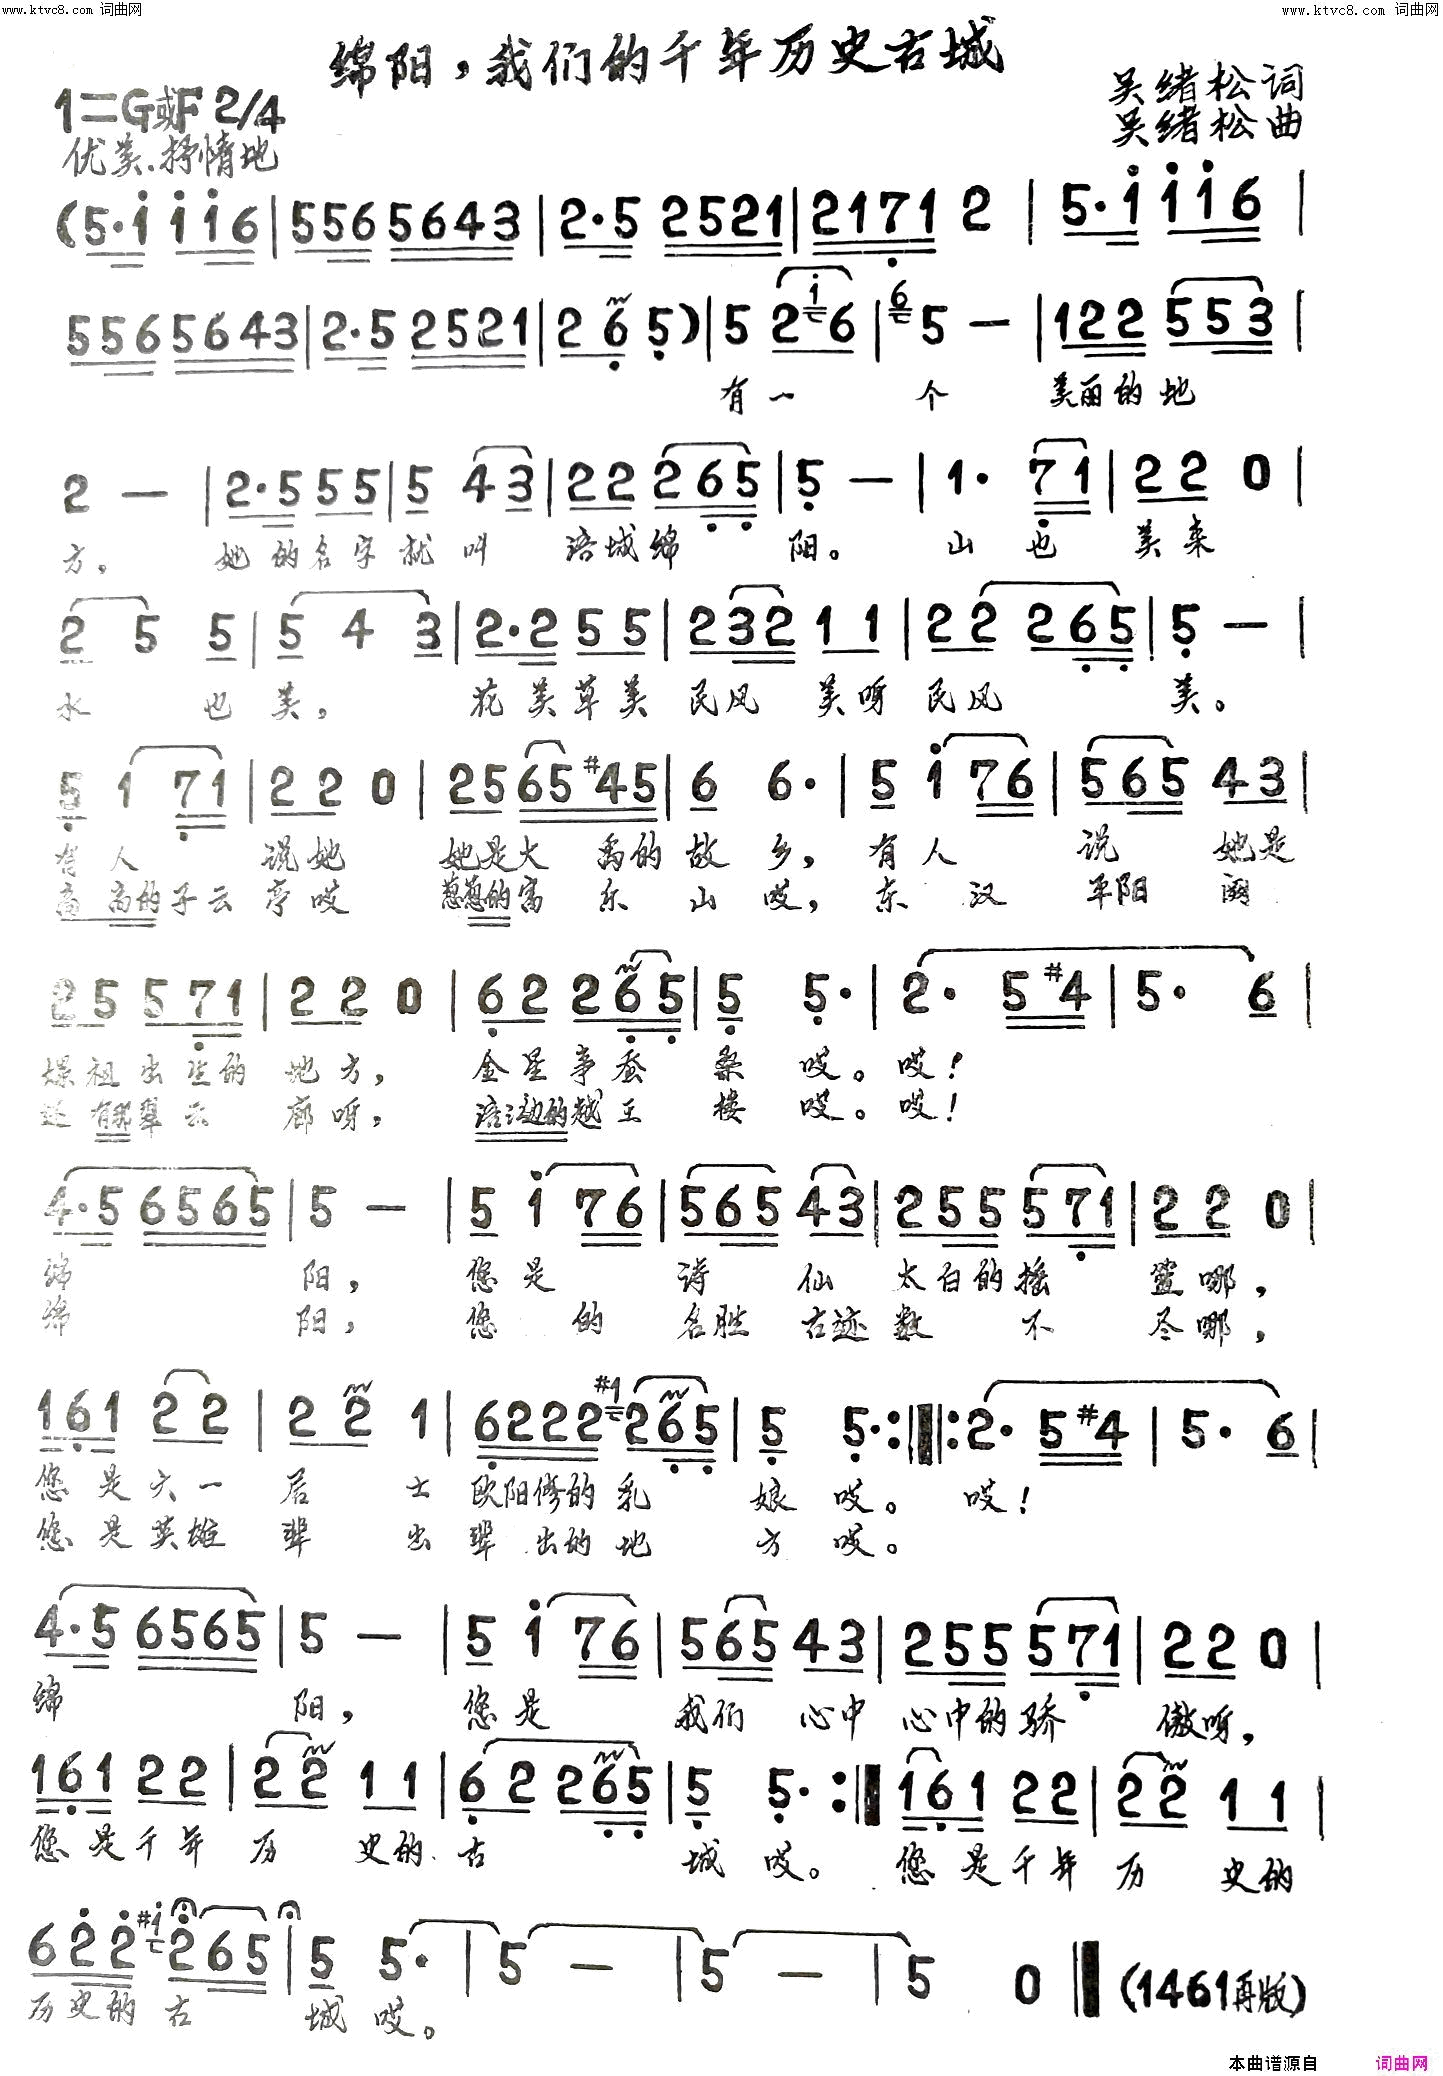 www.ktvc8.com 词曲网
www.ktvc8.com 词曲网
绵阳，我们的千年历史古城
1=G或F 2/4
吴绪松词
吴绪松曲
优美.抒情地
(5·i i i 6 | 5 5 6 5 6 4 3 | 2·5 2 5 2 1 | 2 1 7 1 2 | 5·i i i 6 |
5 5 6 5 6 4 3 | 2·5 2 5 2 1 | 2 6 5) | 5 2 i 6 | 6 5 — | 1 2 2 5 5 3 |
有一 个 美丽的地
2 — | 2·5 5 5 | 5 4 3 | 2 2 2 6 5 | 5 — | 1· 7 1 | 2 2 0 |
方， 她的名字就叫 涪城绵 阳。 山也 美来
2 5 5 | 5 4 3 | 2·2 5 5 | 2 3 2 1 1 | 2 2 2 6 5 | 5 — |
水 也 美， 花美草美 民风 美呀 民风 美。
5 1 7 1 | 2 2 0 | 2 5 6 5 #4 5 | 6 6· | 5 i 7 6 | 5 6 5 4 3 |
有人 说她 她是大禹的故乡， 有人 说 她是
高高的子云亭哎 葱葱的富乐山哎， 东汉 平阳阙
2 5 5 7 1 | 2 2 0 | 6 2 2 6 5 | 5 5· | 2· 5 #4 | 5· 6 |
嫘祖出生的 地方， 金星事蚕 桑 哎。哎！
还有那翠云 廊呀， 涪江边的越王 楼 哎。哎！
4·5 6 5 6 5 | 5 — | 5 i 7 6 | 5 6 5 4 3 | 2 5 5 5 7 1 | 2 2 0 |
绵 阳， 您是 诗 仙 太白的摇 篮哪，
绵 阳， 您 的 名胜 古迹数 不 尽哪，
1 6 1 2 2 | 2 2 1 | 6 2 2 2 #1 2 6 5 | 5 5· :||: 2· 5 #4 | 5· 6 |
您是六一 居 士 欧阳修的乳 娘 哎。 哎！
您是英雄 辈 出 辈出的地 方 哎。
4·5 6 5 6 5 | 5 — | 5 i 7 6 | 5 6 5 4 3 | 2 5 5 5 7 1 | 2 2 0 |
绵 阳， 您是 我们 心中 心中的骄 傲呀，
1 6 1 2 2 | 2 2 1 1 | 6 2 2 6 5 | 5 5· :|| 1 6 1 2 2 | 2 2 1 1 |
您是千年 历 史的 古 城 哎。 您是千年 历 史的
6 2 2 #i 2 6 5 | 5 5· | 5 — | 5 — | 5 0 || (1461再版)
历史的古 城 哎。
本曲谱源自 词曲网